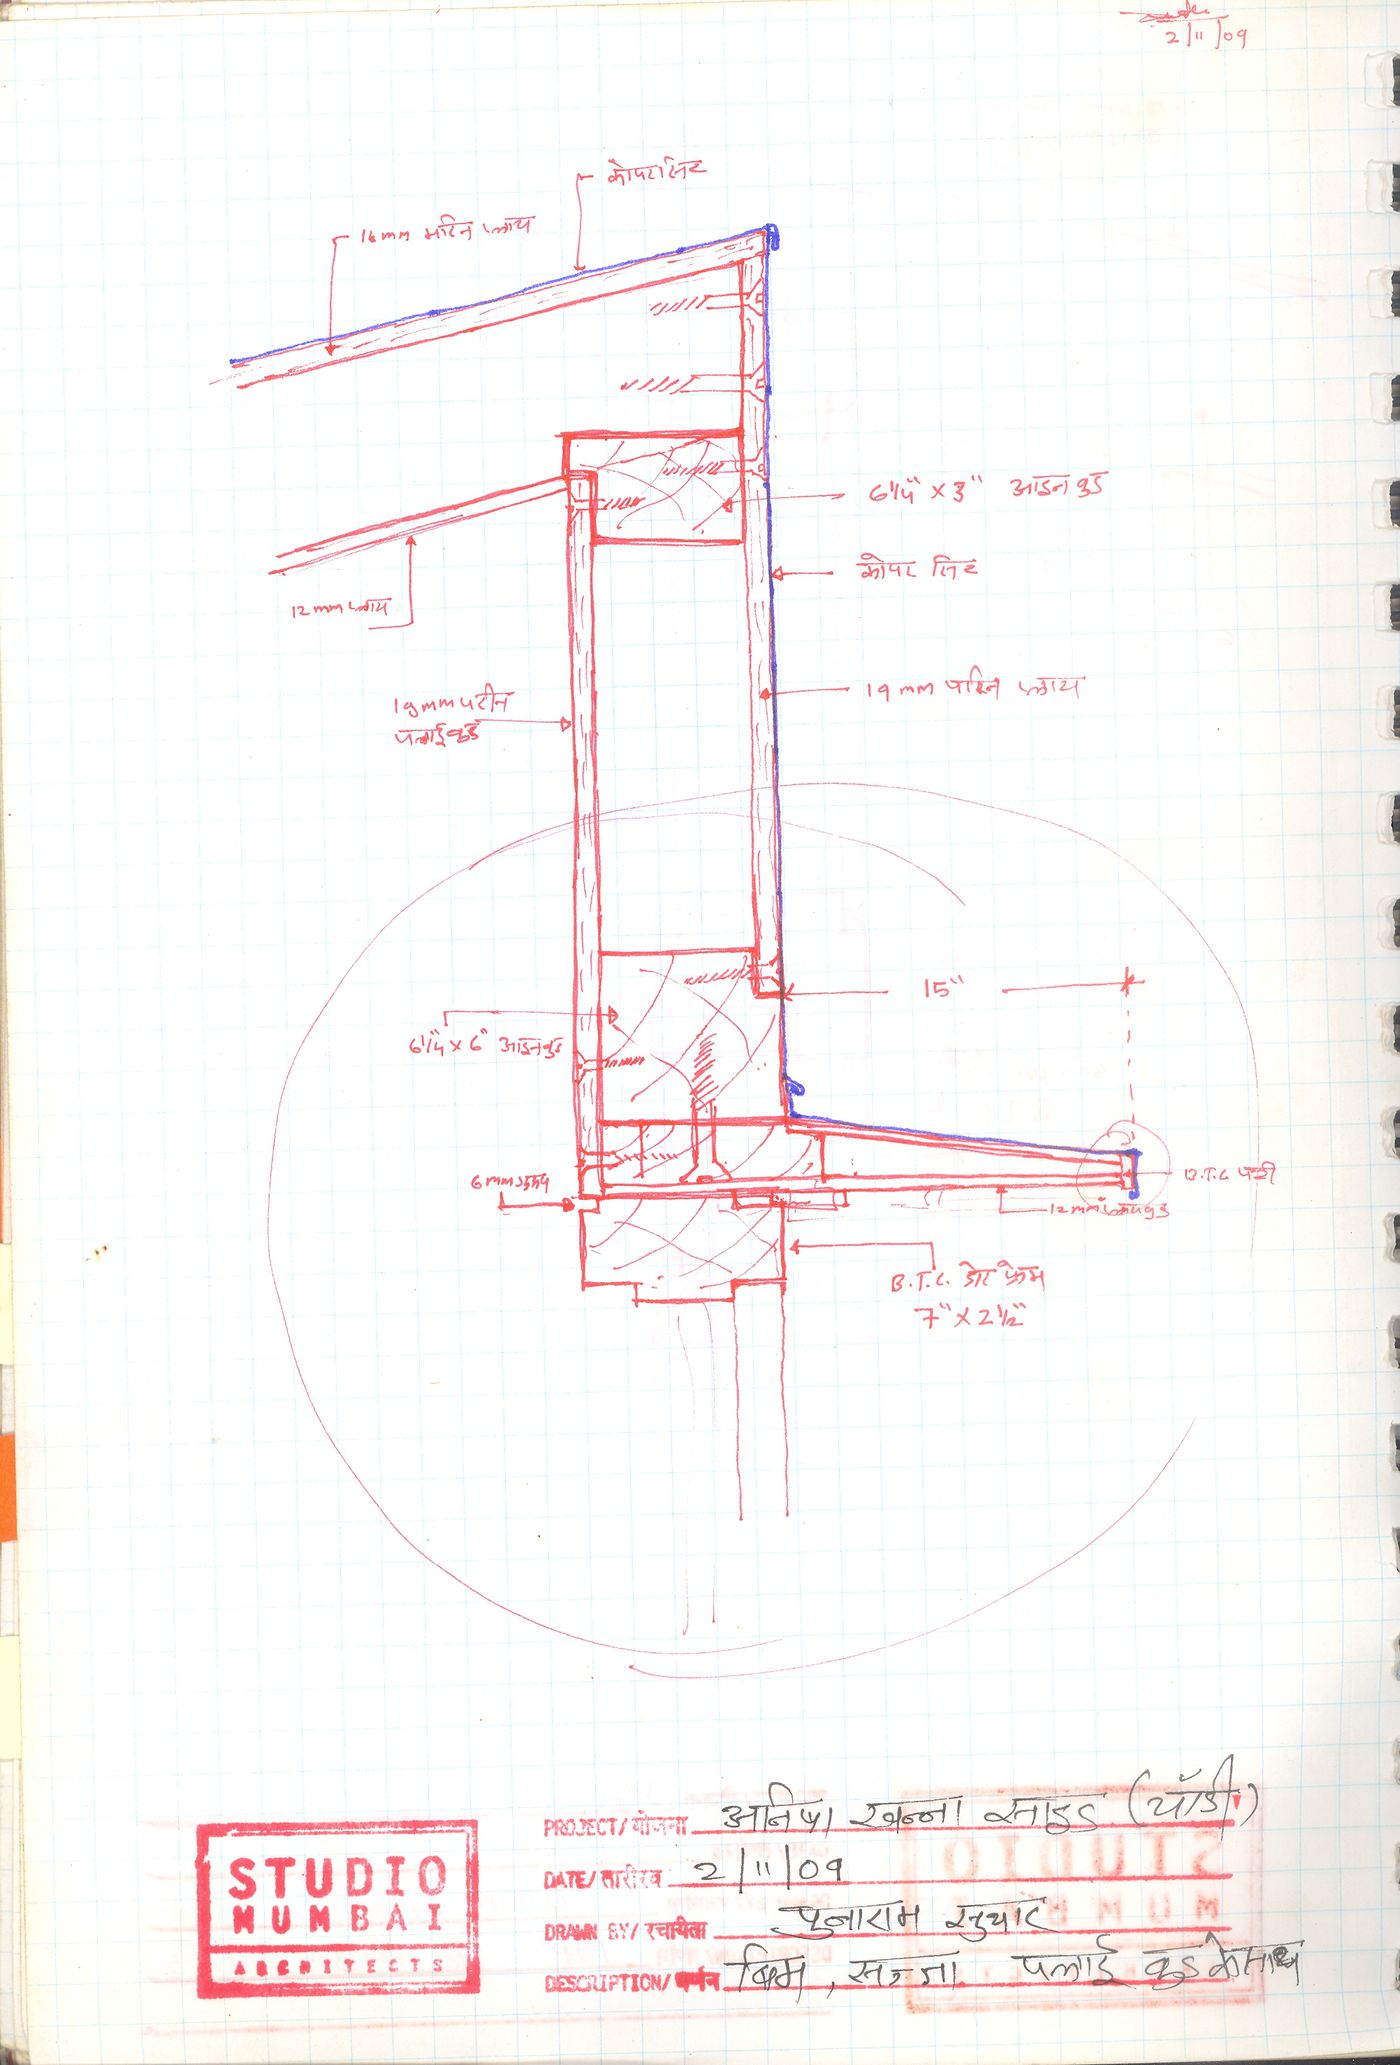 2/11/09
कोपर सिट
16mm मरिन प्लाय
6¼" x 3" आइन वुड
कोपर सिट
12mm प्लाय
19mm मरिन प्लाय
19mm मरीन
प्लाईवुड
15"
6¼" x 6" आइनवुड
6mm
B.T.C पट्टी
12mm प्लायवुड
B.T.C. डोर फ्रेम
7" x 2½"
STUDIO
MUMBAI
ARCHITECTS
PROJECT/योजना अनिषा खन्ना साइड (पॉंडी)
DATE/तारीख 2/11/09
DRAWN BY/रचायिता पुनाराम सुथार
DESCRIPTION/वर्णन बिम, सज्जा पलाई वुड के साथ